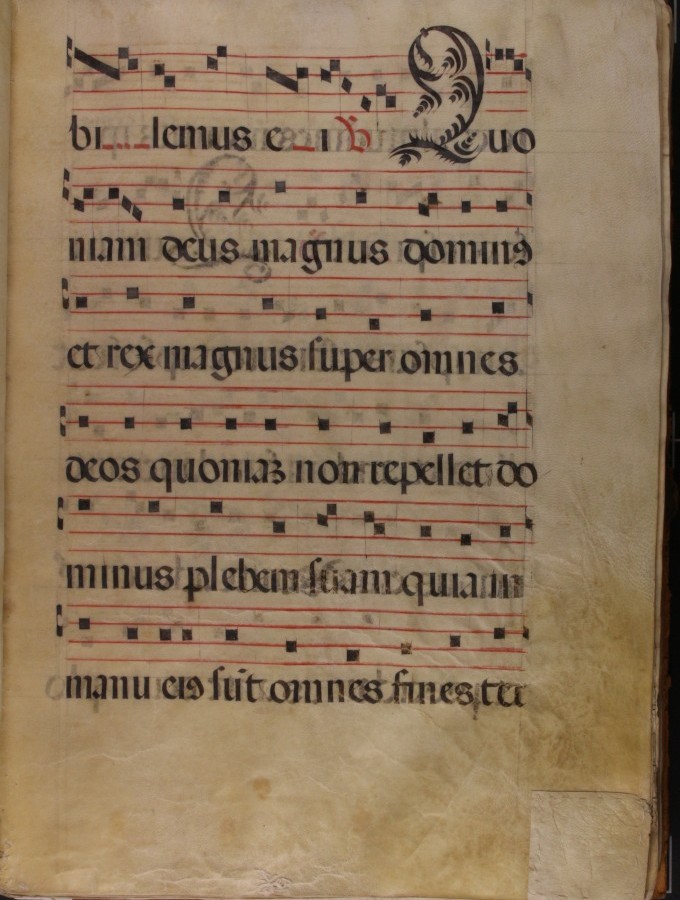 bi lemus e i ℣ Quo
niam deus magnus dominꝰ
et rex magnus super omnes
deos quoniaꝫ non repellet do
minus plebem suam quia in
manu eiꝰ sūt omnes fines ter